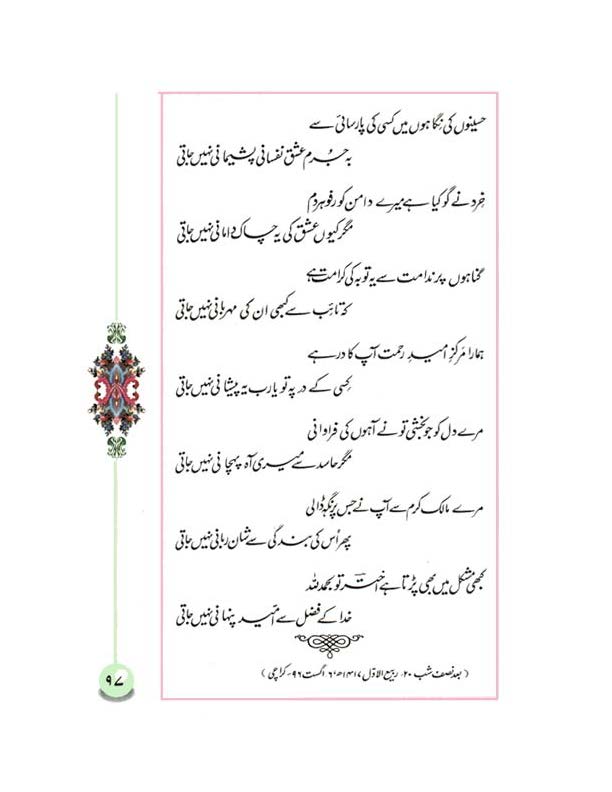 حسینوں کی نگاہوں میں کسی کی پارسائی سے
بہ جُرم عشق نفسانی پشیمانی نہیں جاتی
خِرد نے گو کیا ہے میرے دامن کو رفو ہر دم
مگر کیوں عشق کی یہ چاک دامانی نہیں جاتی
گناہوں پر ندامت سے یہ توبہ کی کرامت ہے
کہ تائب سے کبھی ان کی مہربانی نہیں جاتی
ہمارا مَرکزِ امیدِ رحمت آپ کا در ہے
کِسی کے در پہ تو یارب یہ پیشانی نہیں جاتی
مرے دل کو جو بخشی تو نے آہوں کی فراوانی
مگر حاسد سے میری آہ پہچانی نہیں جاتی
مرے مالک کرم سے آپ نے جس پر نگہ ڈالی
پھر اُس کی بندگی سے شان ربانی نہیں جاتی
کبھی مشکل میں بھی پڑتا ہے اخترؔ تو بحمدللہ
خدا کے فضل سے اُمید پنہانی نہیں جاتی
( بعد نصف شب ۲۰، ربیع الاوّل ۱۴۱۷ھ، ۶ اگست ۹۶۔ کراچی )
۹۷